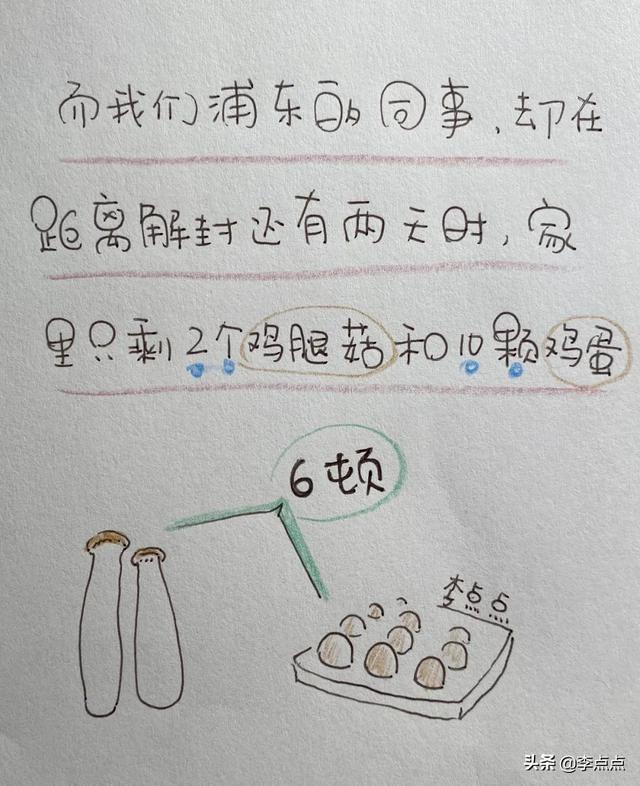 而我们浦东的同事，却在
距离解封还有两天时，家
里只剩2个鸡腿菇和10颗鸡蛋
6顿
李点点
头条 @李点点